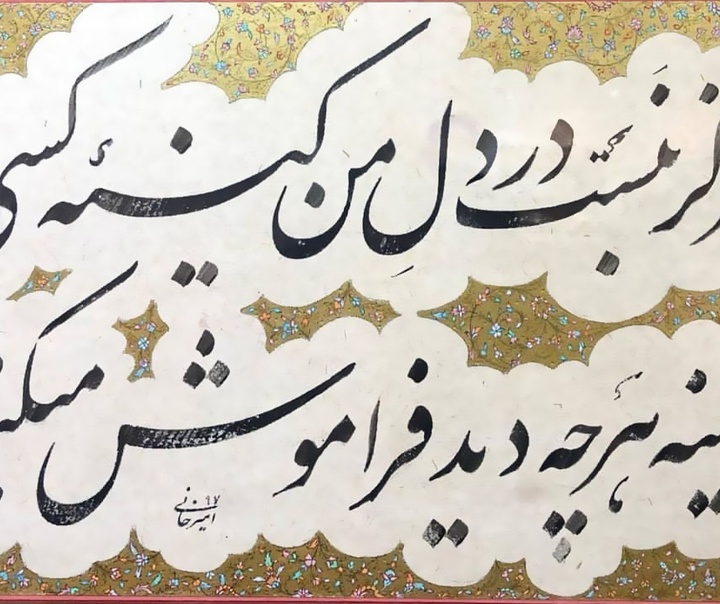 نبست در دل من کینهٔ کسی
هرچه دید فراموش
امیرخانی ۹۷